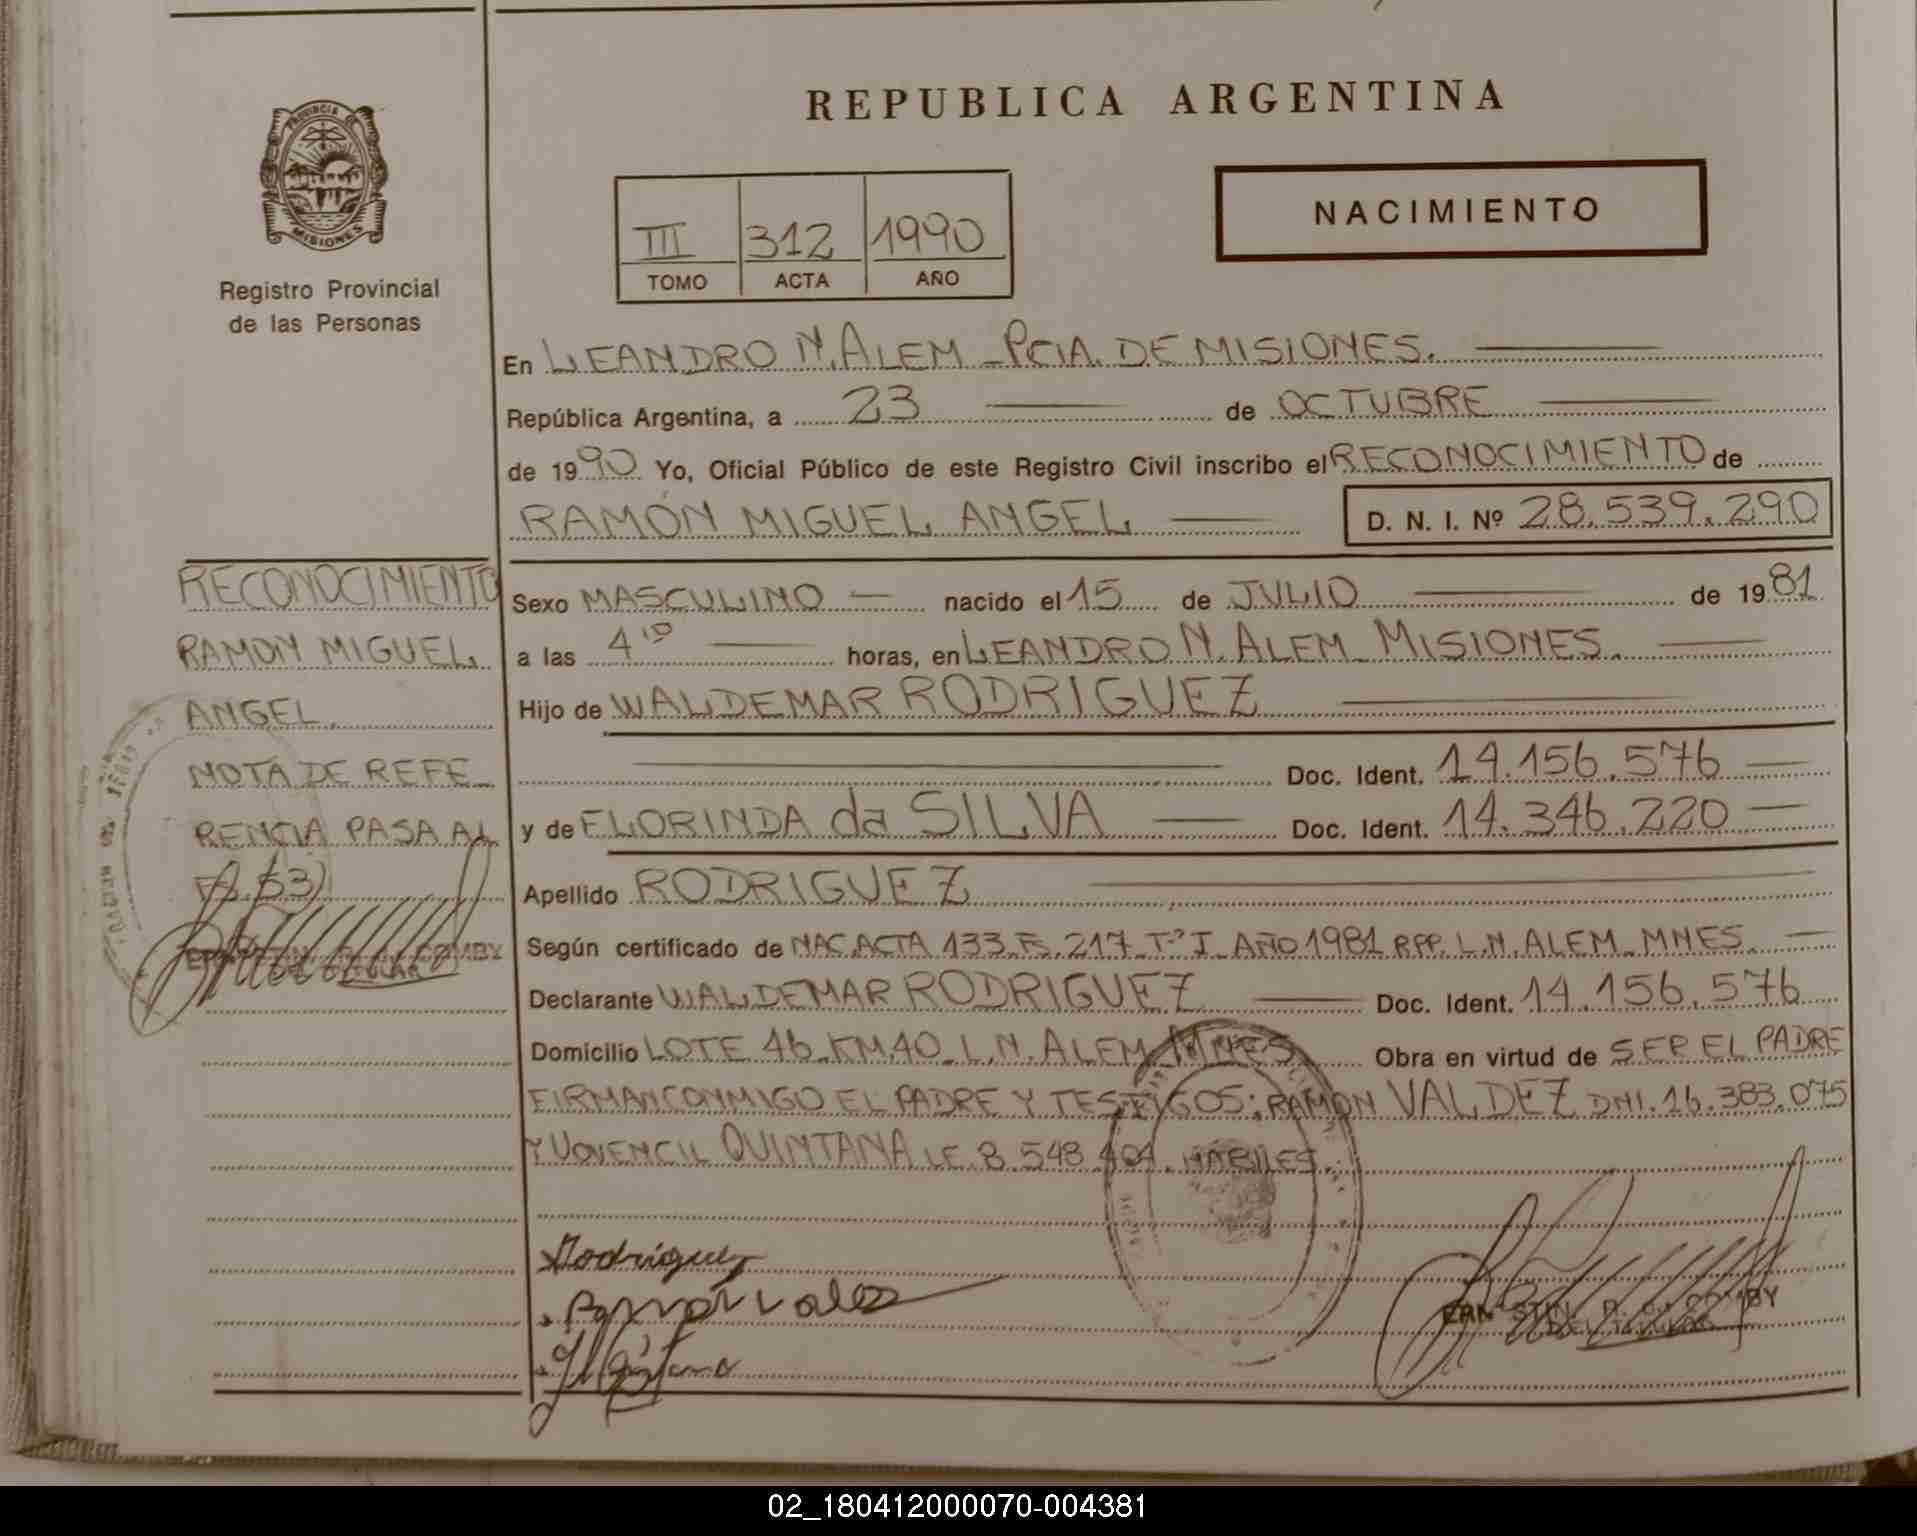 REPUBLICA ARGENTINA
PROVINCIA DE
MISIONES
Registro Provincial
de las Personas
NACIMIENTO
III 312 1990
TOMO ACTA AÑO
En LEANDRO N. ALEM - PCIA. DE MISIONES.
República Argentina, a 23 de OCTUBRE
de 1990 Yo, Oficial Público de este Registro Civil inscribo el RECONOCIMIENTO de
RAMÓN MIGUEL ANGEL D. N. I. Nº 28.539.290
Sexo MASCULINO nacido el 15 de JULIO de 1981
a las 4 10 horas, en LEANDRO N. ALEM - MISIONES.
Hijo de WALDEMAR RODRIGUEZ
Doc. Ident. 14.156.576
y de FLORINDA da SILVA Doc. Ident. 14.346.220
Apellido RODRIGUEZ
Según certificado de NAC. ACTA 133. Fs. 217 Tº I - AÑO 1981 RPP. L.N. ALEM - MNES.
Declarante WALDEMAR RODRIGUEZ Doc. Ident. 14.156.576
Domicilio LOTE 46 - KM. 40 - L.N. ALEM - MNES Obra en virtud de SER EL PADRE
FIRMAN CONMIGO EL PADRE Y TESTIGOS: RAMON VALDEZ DNI. 16.383.075
Y QUINTANA LE. 8.548.404. HABILES.
RECONOCIMIENTO
RAMON MIGUEL
ANGEL.
NOTA DE REFE-
RENCIA PASA AL
Fs. 53)
Rodriguez
02_180412000070-004381